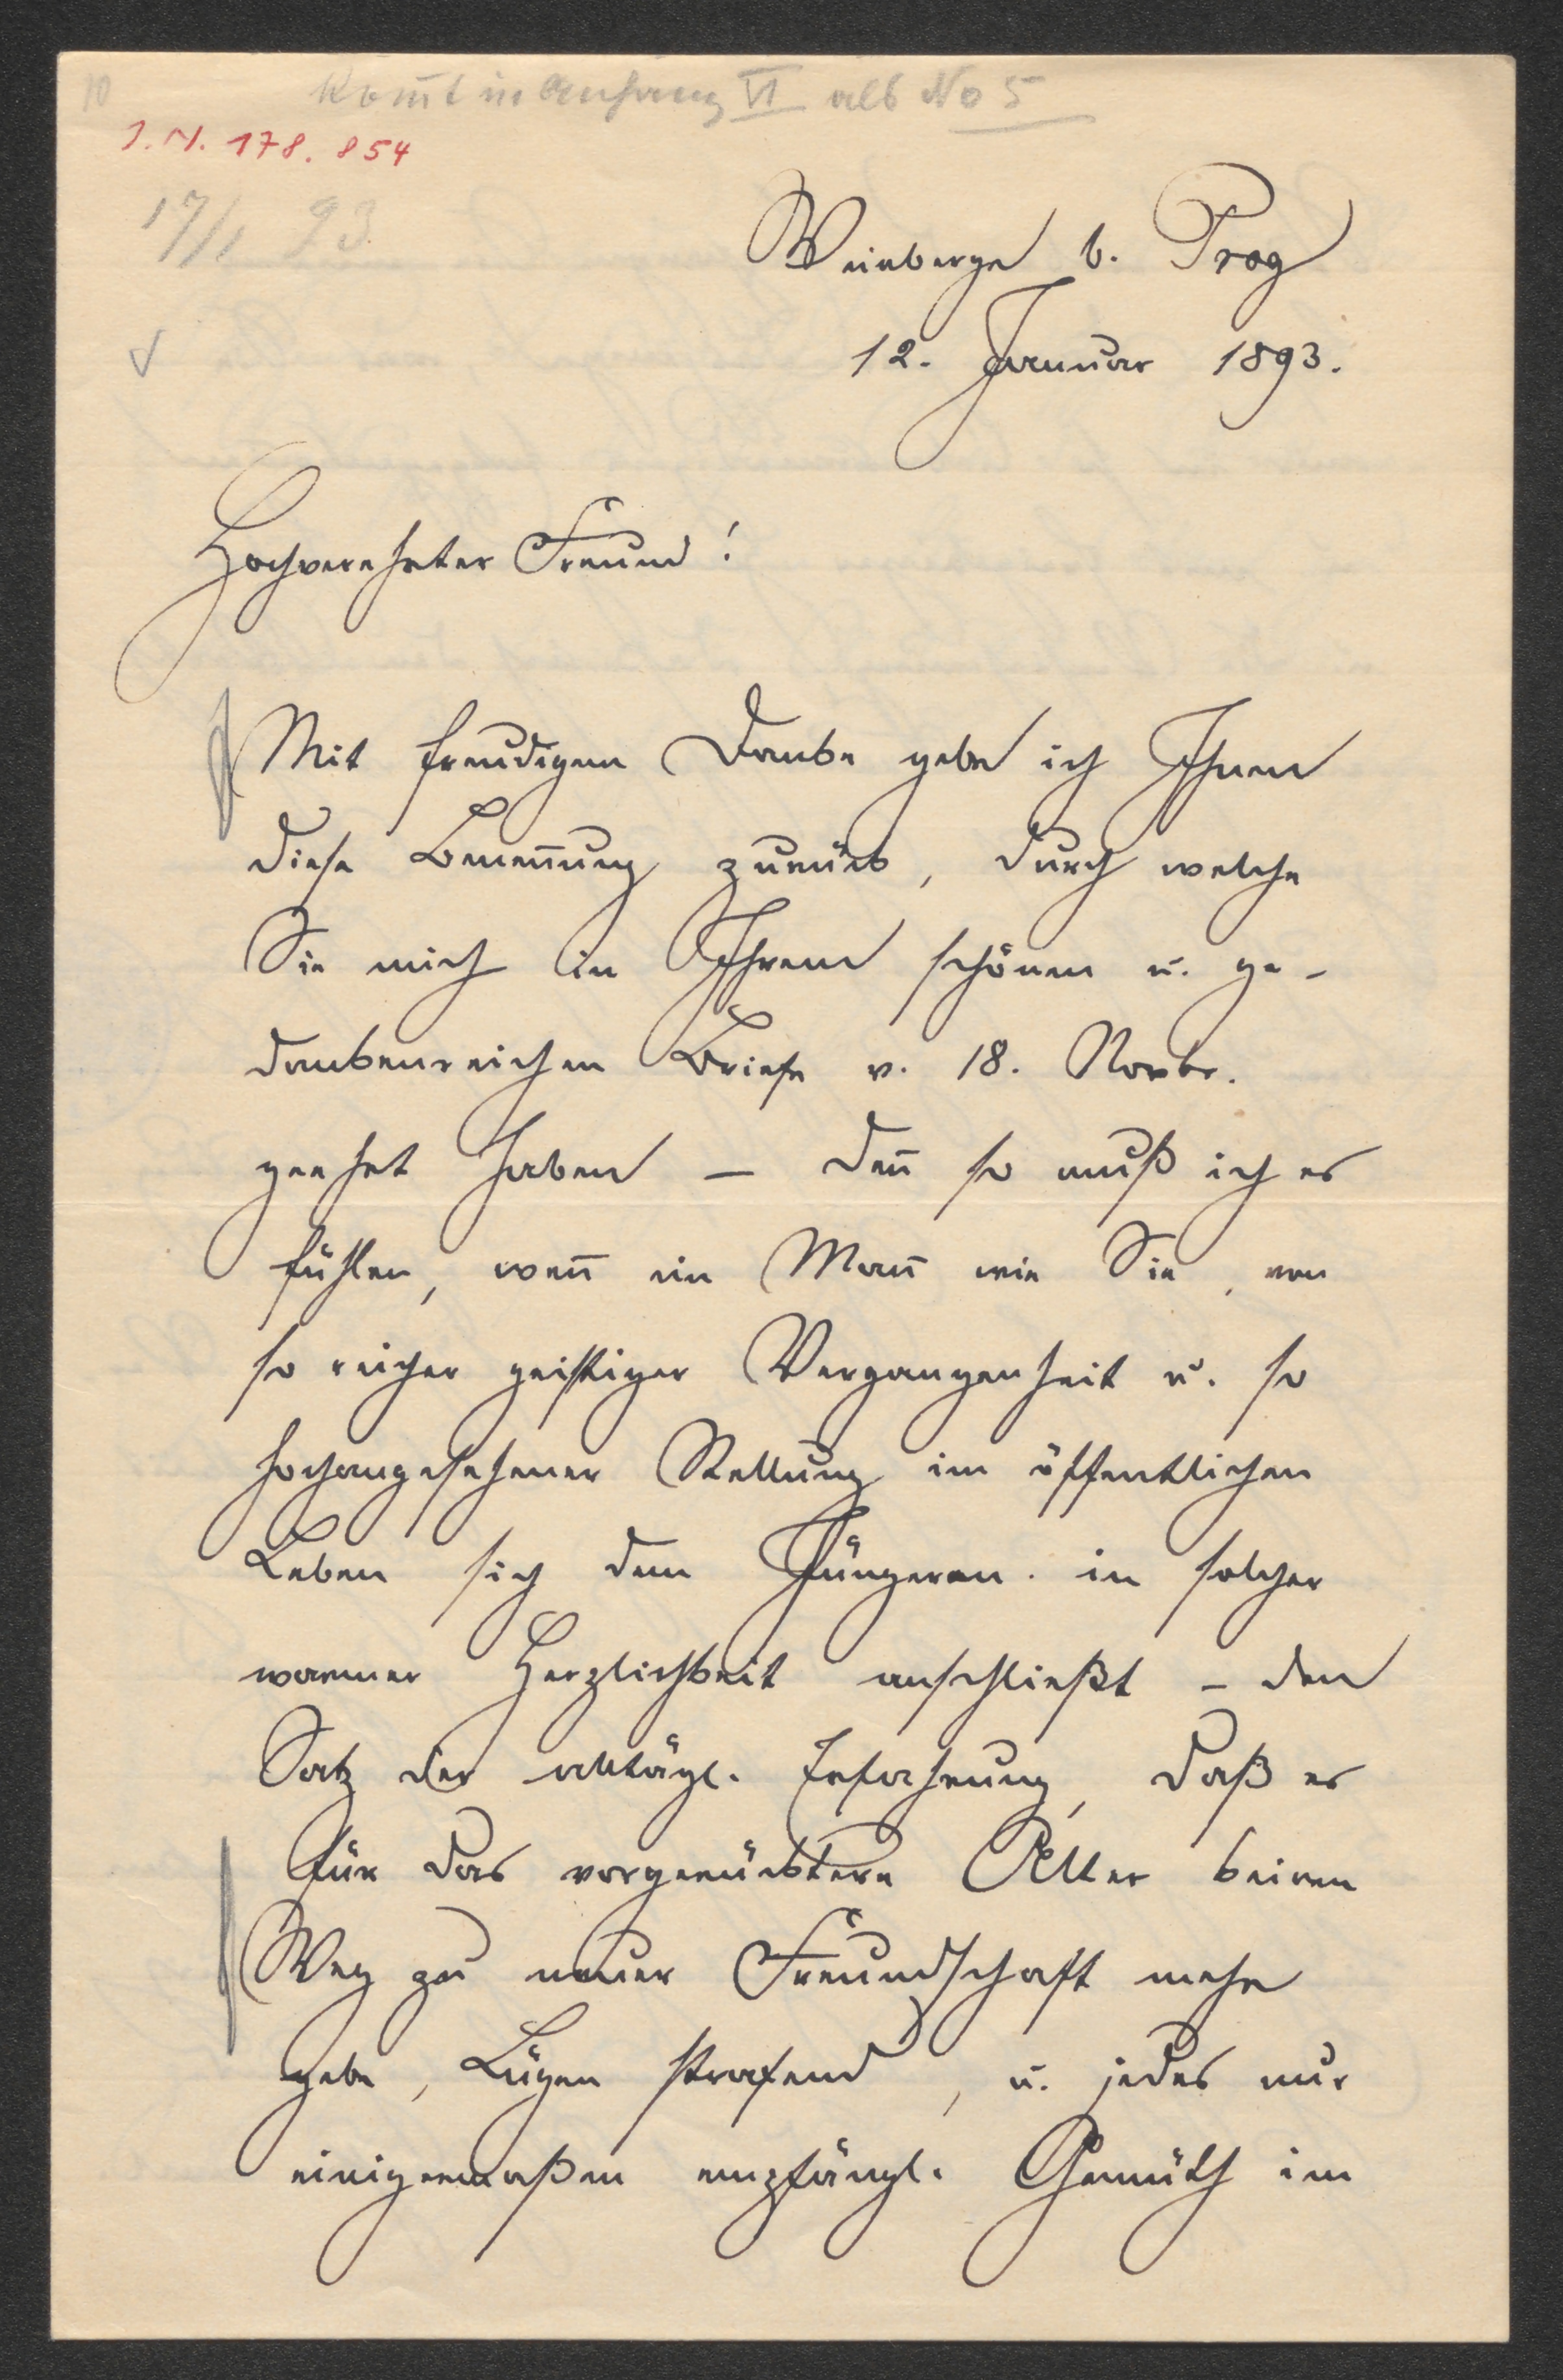 10
Kom̅t in Anhang VI als No 5
I.N. 178.854
17/1 93.
Weinberge b. Prag
12. Januar 1893.
Hochverehrter Freund!
Mit freudigem Danke gebe ich Ihnen
diese Benen̅ung zurück, durch welche
Sie mich in Ihrem schönen u. ge-
dankenreichen Briefe v. 18. Novbr.
geehrt haben — den̅ so muß ich es
fühlen, wen̅ ein Man̅ wie Sie, von
so reicher geistiger Vergangenheit u. so
hochangesehener Stellung im öffentlichen
Leben sich dem Jüngeren in solcher
warmer Herzlichkeit anschließt – den
Satz der alltägl. Erfahrung, daß es
für das vorgerücktere Alter keinen
Weg zu neuer Freundschaft mehr
gebe, Lügen strafend, u. jedes nur
einigermaßen empfängl. Gemüth im